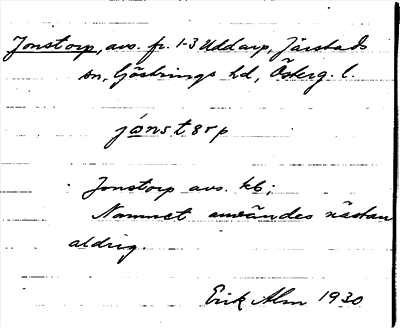 Jonstorp, avs. fr. 1-3 Uddarp, Järstads
sn, Göstrings hd, Österg. l.
jónstərp
Jonstorp avs. kb;
Namnet användes nästan
aldrig.
Erik Alm 1930